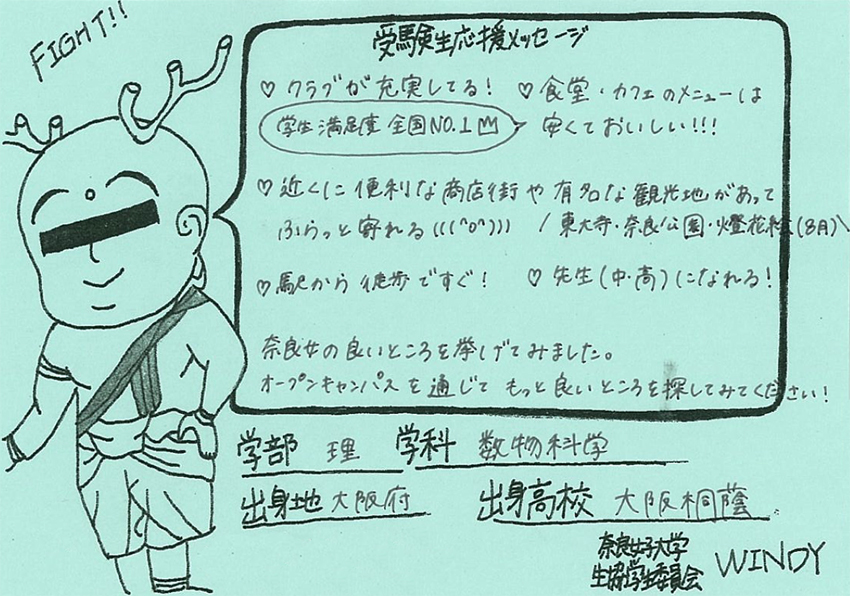 FIGHT!!
受験生応援メッセージ
♡ クラブが充実してる!
学生満足度 全国NO.1
♡ 食堂・カフェのメニューは
安くておいしい!!!
♡ 近くに便利な商店街や有名な観光地があって
ふらっと寄れる(((^o^))) / 東大寺・奈良公園・燈花絵(8月)\
♡ 駅から徒歩ですぐ!
♡ 先生(中・高)になれる!
奈良女の良いところを挙げてみました。
オープンキャンパスを通じてもっと良いところを探してみてください!
学部 理 学科 数物科学
出身地 大阪府 出身高校 大阪桐蔭
奈良女子大学
生協学生委員会 WINDY